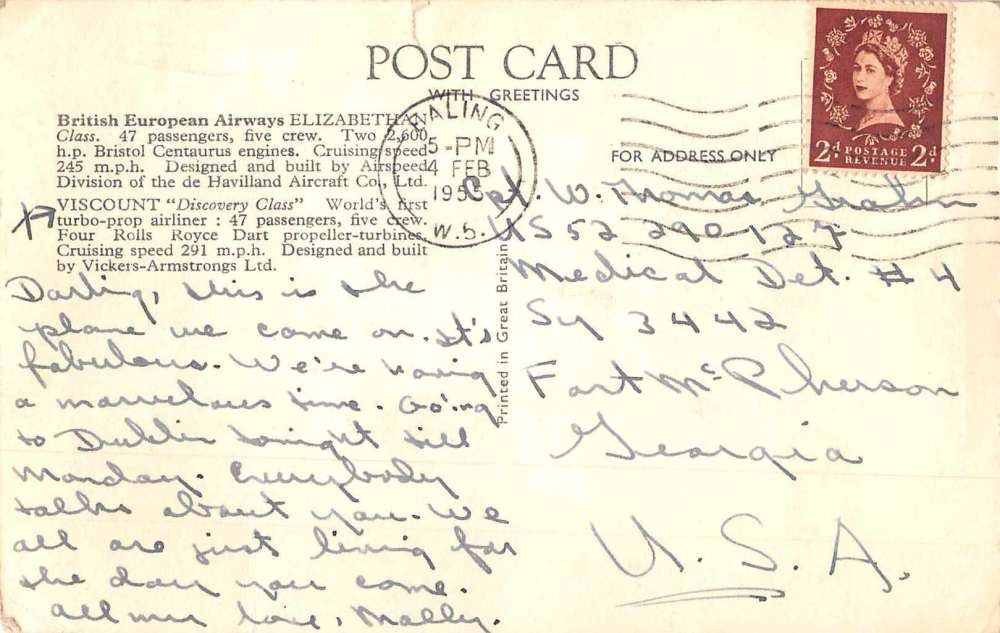 POST CARD
WITH GREETINGS
British European Airways ELIZABETHAN
Class. 47 passengers, five crew. Two 2,600
h.p. Bristol Centaurus engines. Cruising speed
245 m.p.h. Designed and built by Airspeed
Division of the de Havilland Aircraft Co., Ltd.
VISCOUNT "Discovery Class" World's first
turbo-prop airliner : 47 passengers, five crew.
Four Rolls Royce Dart propeller-turbines.
Cruising speed 291 m.p.h. Designed and built
by Vickers-Armstrongs Ltd.
Darling, this is the
plane we came on. It's
fabulous. We're having
a marvelous time. Going
to Dublin tonight till
Monday. Everybody
talks about you. We
all are just living for
the day you come.
All my love, Molly.
Printed in Great Britain
EALING
5-PM
4 FEB
195
W.5.
FOR ADDRESS ONLY
2d POSTAGE REVENUE 2d
W. Thomas
US 52 290 127
Medical Det. #4
3442
Fort McPherson
Georgia
U.S.A.